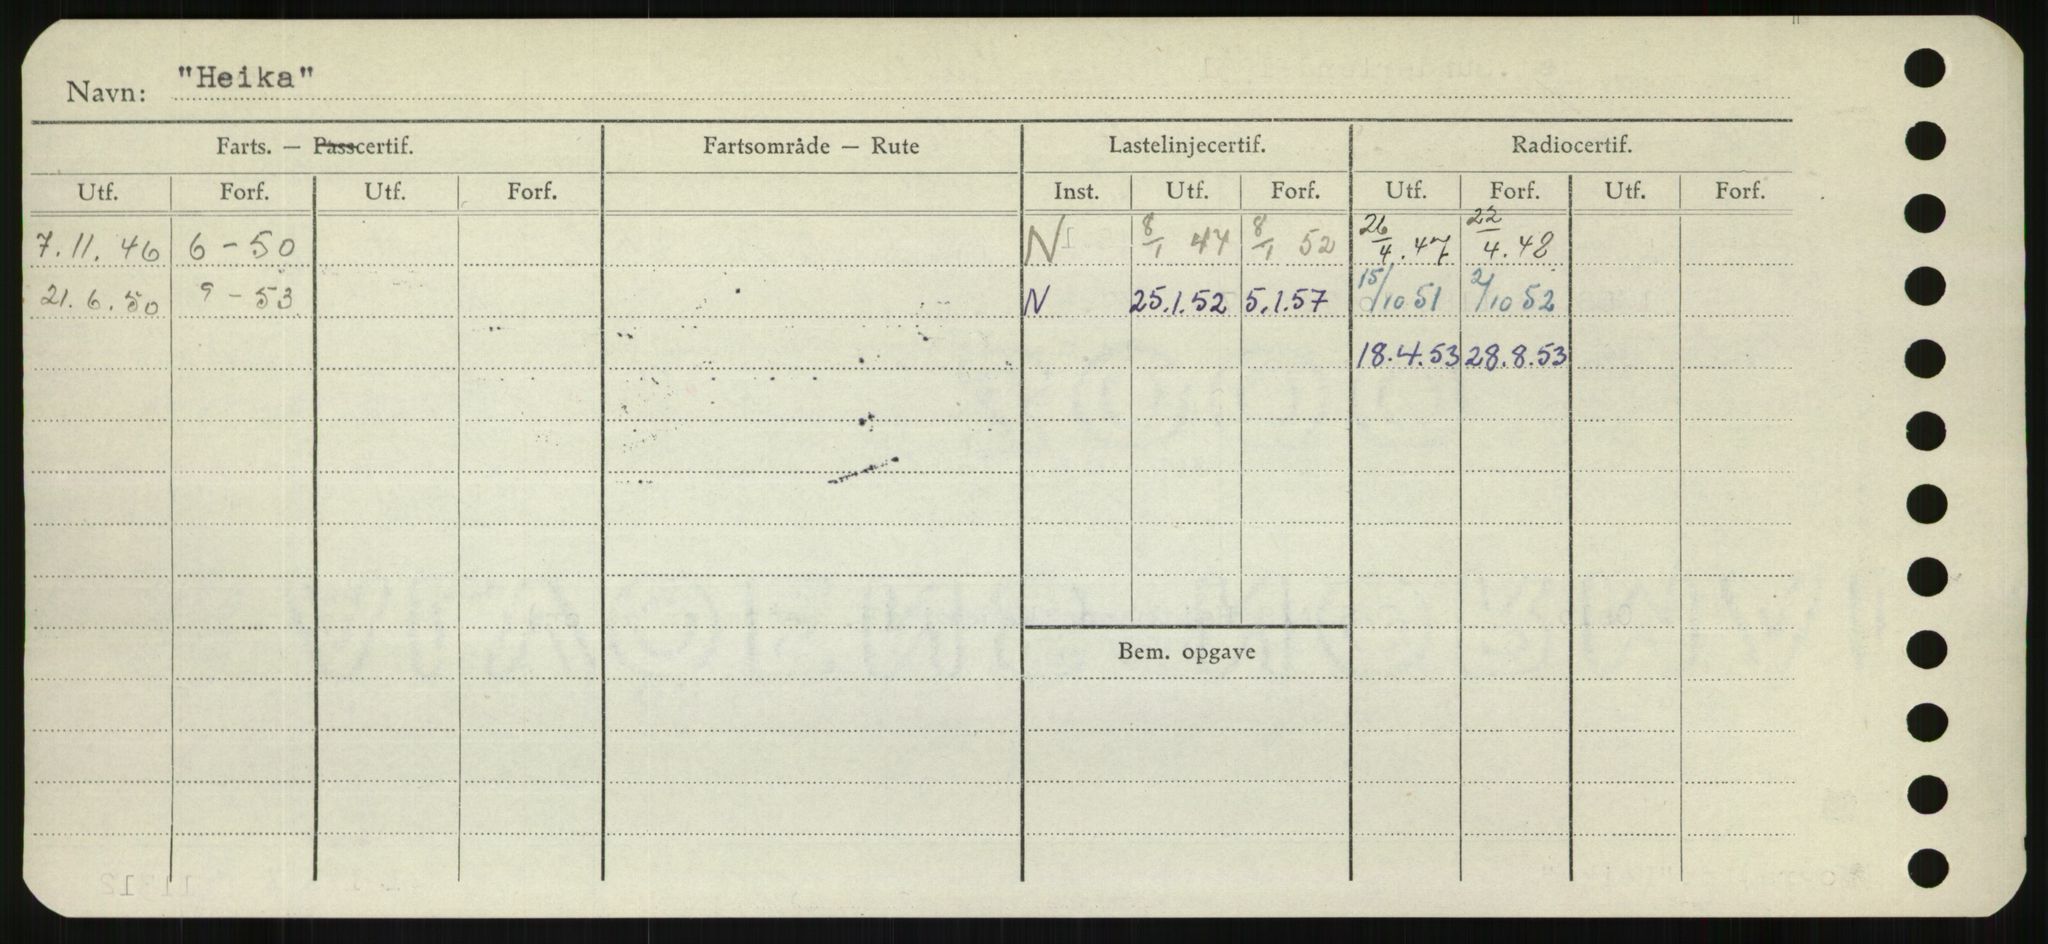 Navn: "Heika"
Farts. — Passcertif. Fartsområde — Rute Lastelinjecertif. Radiocertif.
Utf. Forf. Utf. Forf. Inst. Utf. Forf. Utf. Forf. Utf. Forf.
7.11.46 6-50 N 8/1 47 8/1 52 26/4.47 22/4.48
21.6.50 9-53 N 25.1.52 5.1.57 15/10 51 2/10 52
18.4.53 28.8.53
Bem. opgave